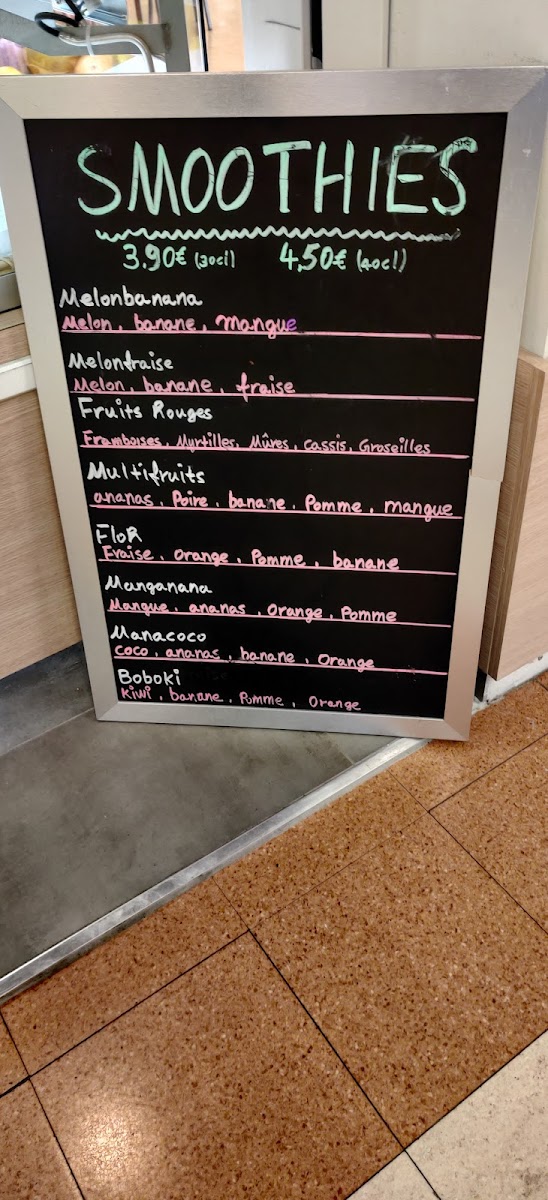 SMOOTHIES
3.90€ (30cl) 4,50€ (40cl)
Melonbanana
Melon, banane, mangue
Melonfraise
Melon, banane, fraise
Fruits Rouges
Framboises, Myrtilles, Mûres, Cassis, Groseilles
Multifruits
ananas, Poire, banane, Pomme, mangue
FloR
Fraise, orange, Pomme, banane
Manganana
Mangue, ananas, Orange, Pomme
Manacoco
Coco, ananas, banane, Orange
Boboki
Kiwi, banane, Pomme, Orange